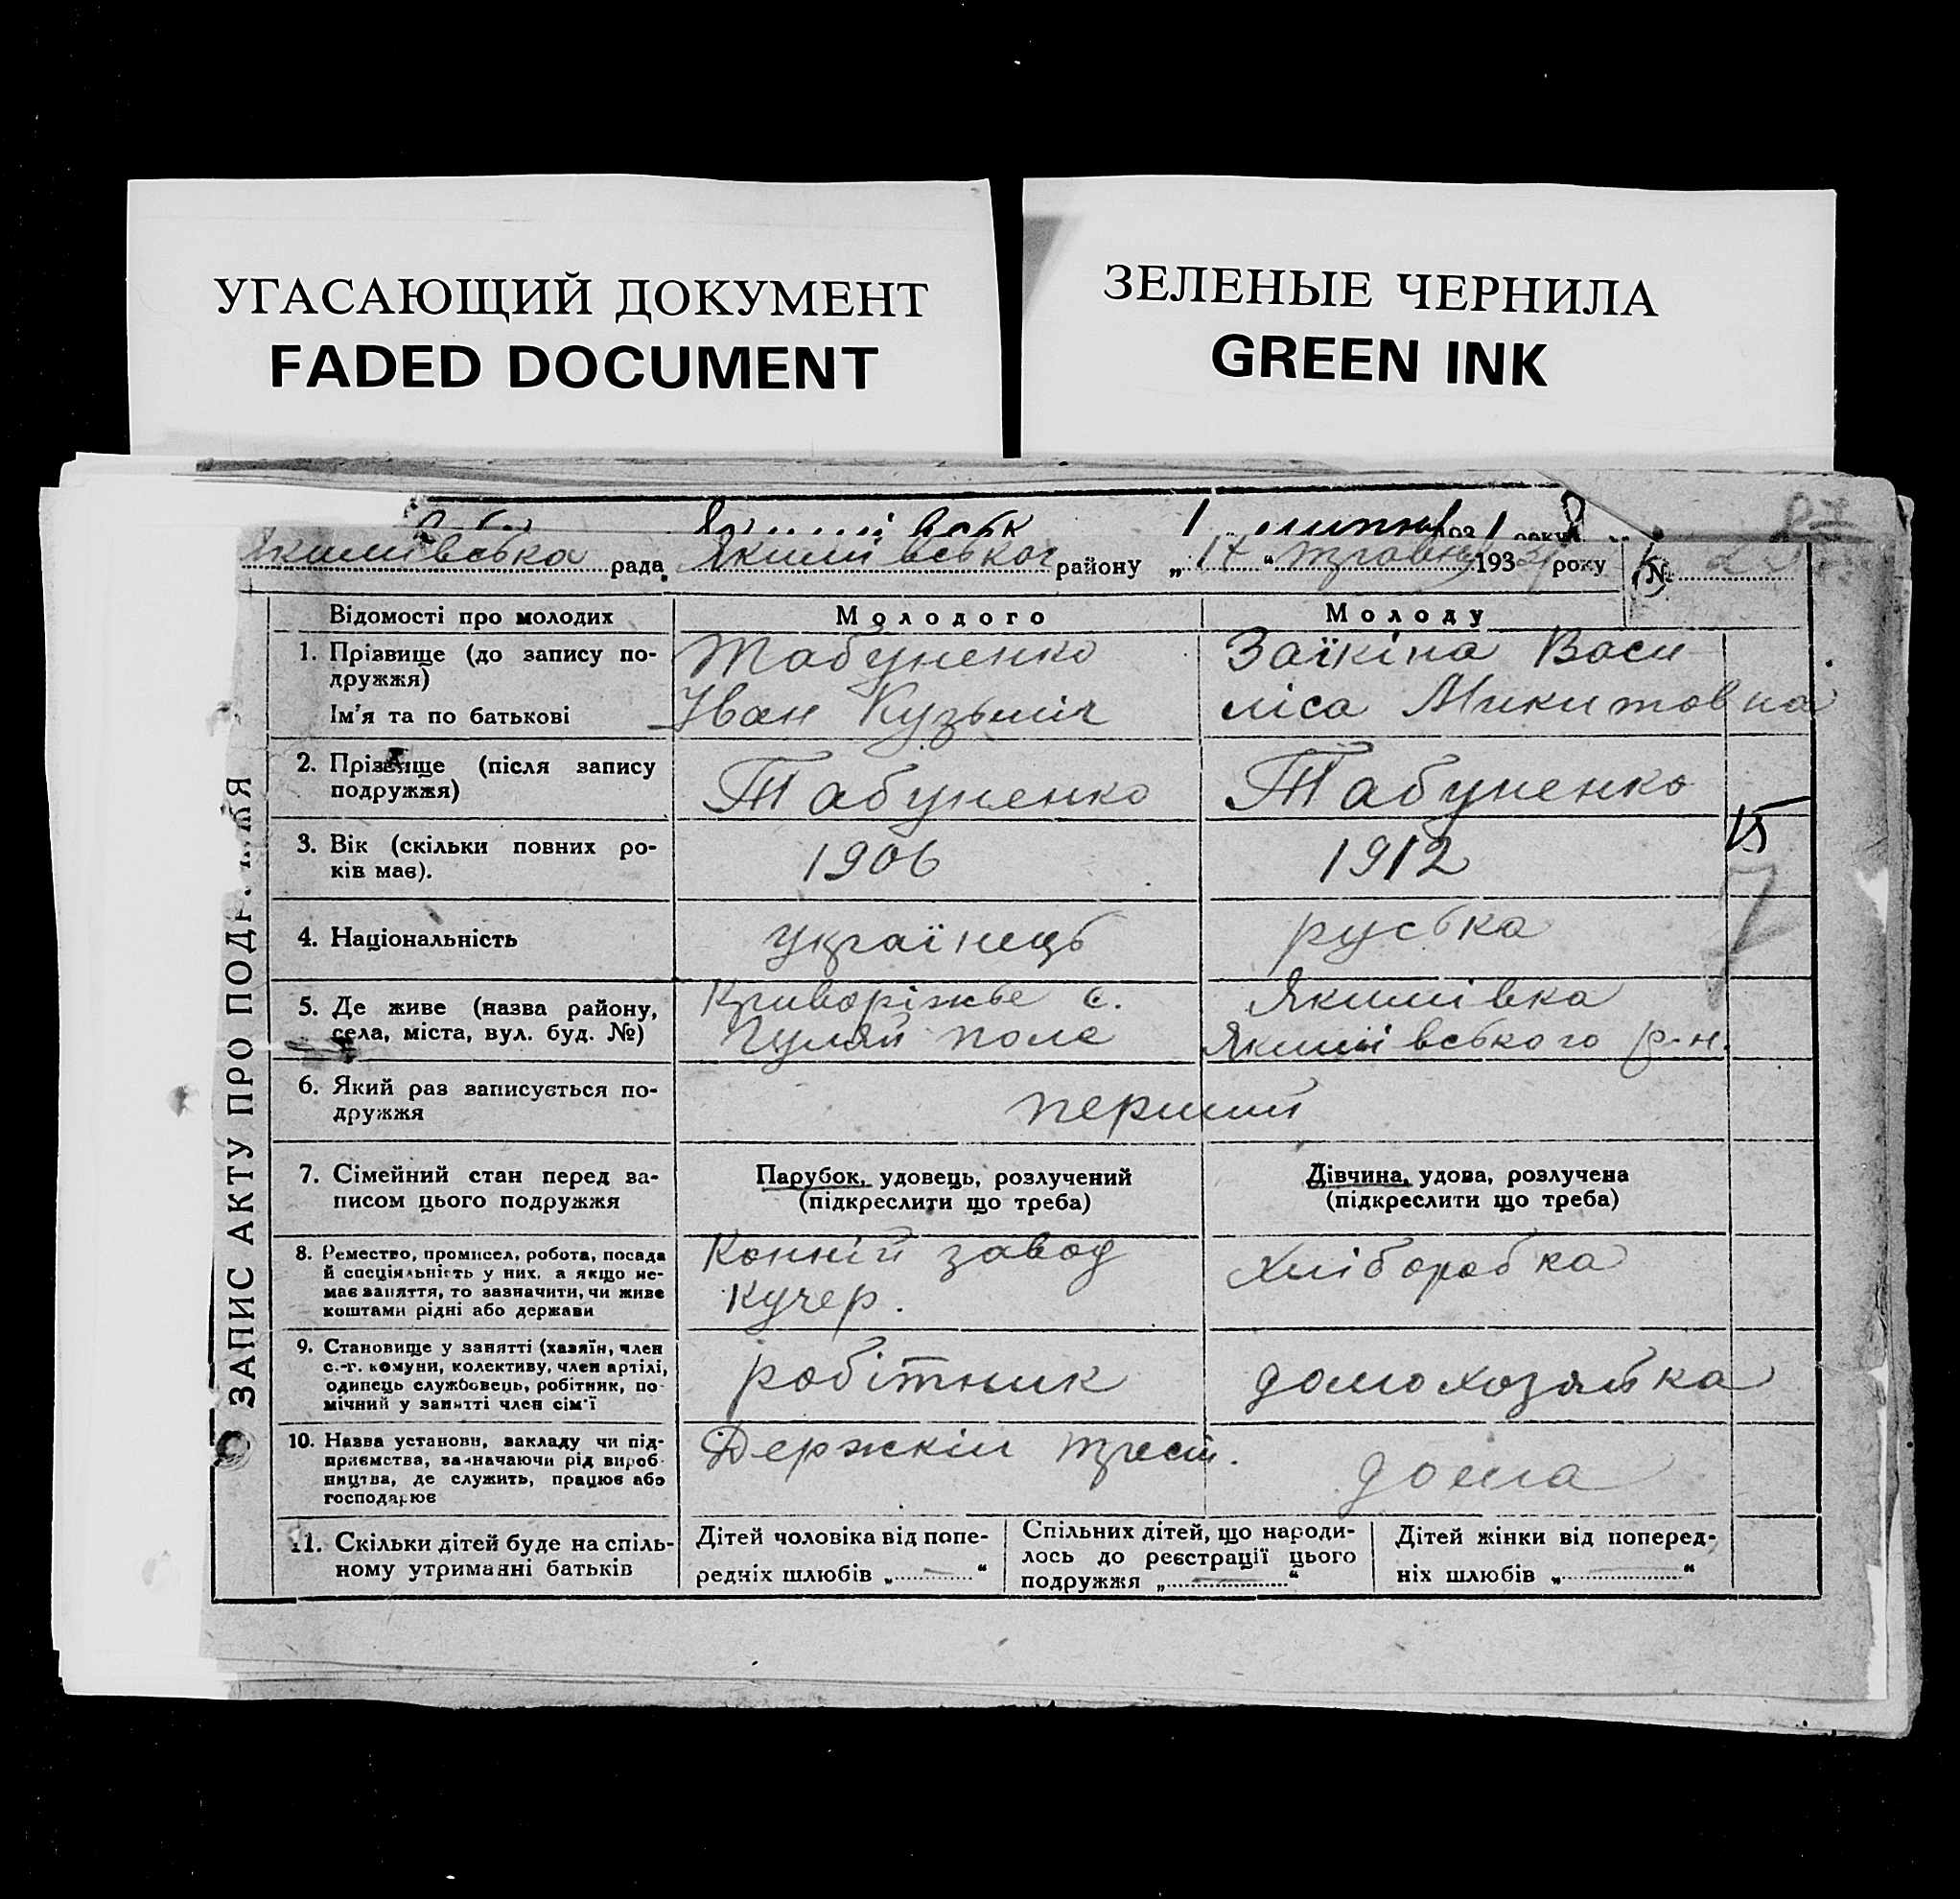 УГАСАЮЩИЙ ДОКУМЕНТ
FADED DOCUMENT
ЗЕЛЕНЫЕ ЧЕРНИЛА
GREEN INK
Якимівська рада Якимівськог району „ 17 “ травня 193 року №
ЗАПИС АКТУ ПРО
Відомості про молодих
Молодого
Молоду
1. Прізвище (до запису по-
дружжя)
Ім'я та по батькові
Табуненко
Іван Кузьміч
Заїкіна Васи
ліса Микитовна
2. Прізвище (після запису
подружжя)
Табуненко
Табуненко
3. Вік (скільки повних ро-
ків має).
1906
1912
4. Національність
українець
руська
5. Де живе (назва району,
села, міста, вул. буд. №)
Криворіжье с.
Гуляй поле
Якимівка
Якимівського р-н.
6. Який раз записується по-
дружжя
перший
7. Сімейний стан перед за-
писом цього подружжя
Парубок, удовець, розлучений
(підкреслити що треба)
Дівчина, удова, розлучена
(підкреслити що треба)
8. Ремество, промисел, робота, посада
й спеціяльність у них, а якщо не-
має заняття, то зазначити, чи живе
коштами рідні або держави
Конній завод
Кучер.
Хліборобка
9. Становище у занятті (хазяїн, член
с.-г. комуни, колективу, член артілі,
одинець службовець, робітник, по-
мічний у занятті член сім'ї
робітник
домохозяйка
10. Назва установи, закладу чи під-
приємства, зазначаючи рід вироб-
ництва, де служить, працює або
господарює
Держкін трест.
дома
11. Скільки дітей буде на спіль-
ному утриманні батьків
Дітей чоловіка від попе-
редніх шлюбів „ — “
Спільних дітей, що народи-
лось до реєстрації цього
подружжя „ — “
Дітей жінки від поперед-
ніх шлюбів „ — “